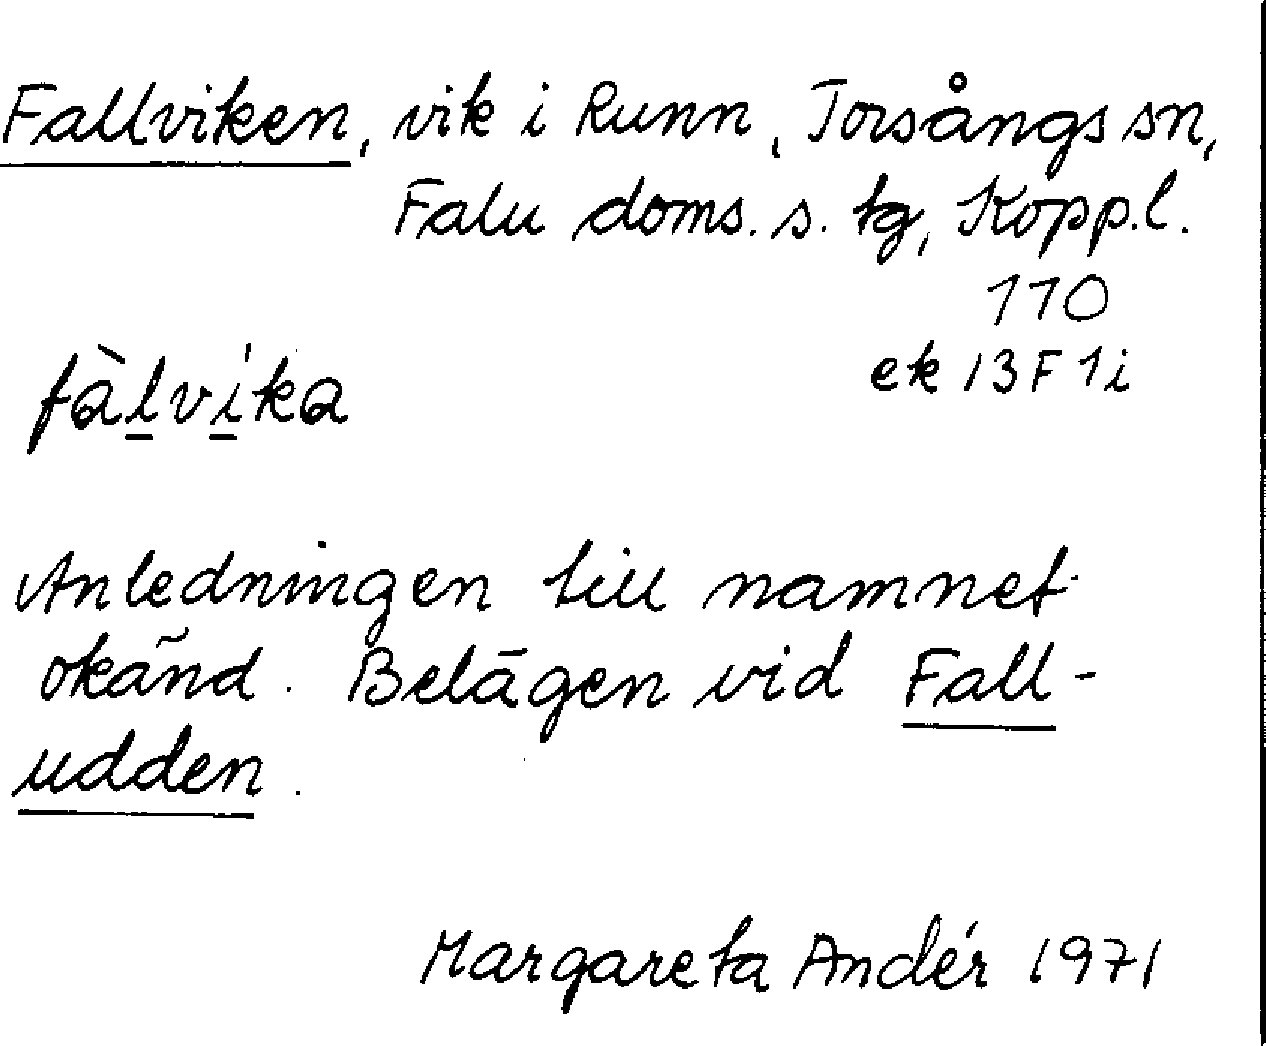 Fallviken, vik i Runn, Torsångs sn,
Falu doms. s. tg, Kopp.l.
110
ek 13F 1i
fàl̲ví̲ka
Anledningen till namnet
okänd. Belägen vid Fall-
udden.
Margareta Andér 1971